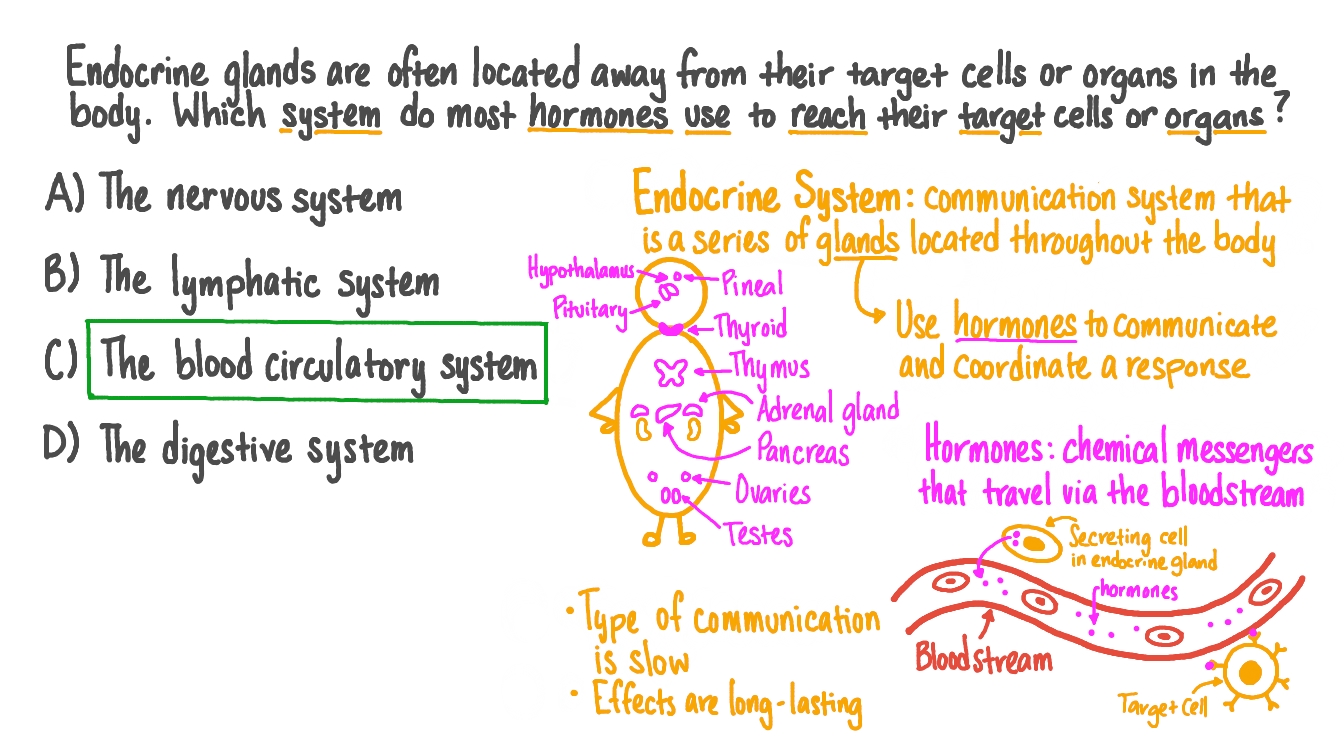 Endocrine glands are often located away from their target cells or organs in the
body. Which system do most hormones use to reach their target cells or organs?
A) The nervous system
B) The lymphatic system
C) The blood circulatory system
D) The digestive system
Endocrine System: communication system that
is a series of glands located throughout the body
Hypothalamus
Pineal
Pituitary
Thyroid
Thymus
Adrenal gland
Pancreas
Ovaries
Testes
Use hormones to communicate
and coordinate a response
Hormones: chemical messengers
that travel via the bloodstream
Secreting cell
in endocrine gland
hormones
Bloodstream
Target cell
• Type of communication
is slow
• Effects are long-lasting